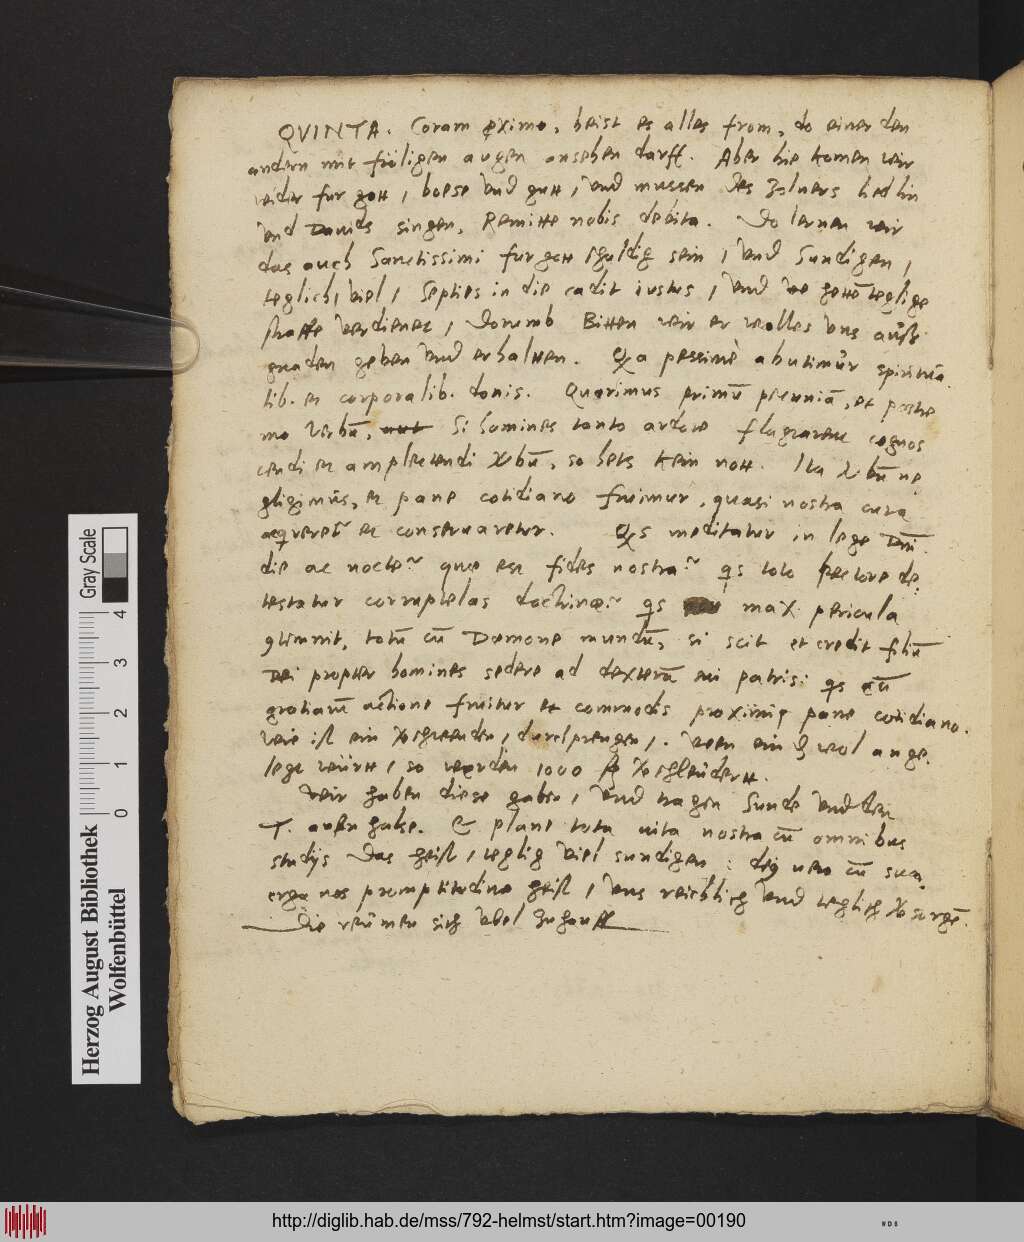 QVINTA. Coram proximo, heist es alles from, do einer den
andern mit fröligen augen ansehen darff. Aber hie komen wir
wider fur gott, boese und gutt, und mussen des Zolners liedlin
und Davids singen, Remitte nobis debita. Do lernen wir
das auch Sanctissimi fur gott schuldig sein, und Sundigen,
teglich, viel, Septies in die cadit iustus, und hette teglige
straffe verdienet, Dorumb Bitten wir er wolles uns auß
gnaden geben und erhaltten. Q̄a pessimè abutimur spiritua
lib. et corporalib. donis. Quærimus primū pecuniā, et postre
mo Verbū, aut Si homines tanto ardore flagrarent cognos
cendi et amplectendi Vbū, so hets kein nott. Ita Vbū ne
gligimus, et pane cotidiano fruimur, quasi nostra cura
acq̄reret et conservaretur. Q̄s meditatur in lege Dn̄i
die ac nocte? que est fides nostra? q̄s toto pectore de
testatur corruptelas doctrinæ? q̄s max pericula
totū cū Dæmone mundū, si scit et credit filiū
Dei propter homines sedere ad dexterā patris: q̄s cū
gratiarū actione fruitur et commodis proximi pane cotidiano.
Wie ist ein Vschwenden, durchprengen,. Wen ein wol ange
legt württ, so werden 1000 fl Vschleudertt.
Wir haben diese gaben, und tragen Sunde und den
T. außm halse. Et plane tota vita nostra cū omnibus
studijs Das heist, teglig viel sundigen: d vero cū sua
erga nos promptitudine heist, uns reichlich und teglich Vsorgē.
Die reumen sich ubel zuhauff
Gray Scale
0 1 2 3 4
Herzog August Bibliothek
Wolfenbüttel
http://diglib.hab.de/mss/792-helmst/start.htm?image=00190